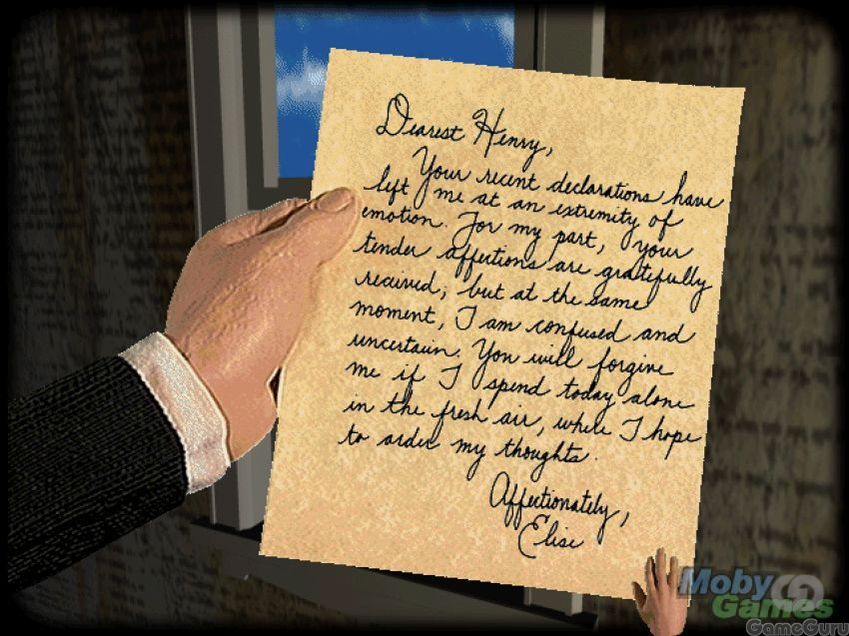 Dearest Henry,
Your recent declarations have
left me at an extremity of
emotion. For my part, your
tender affections are gratefully
received; but at the same
moment, I am confused and
uncertain. You will forgive
me if I spend today alone
in the fresh air, while I hope
to order my thoughts.
Affectionately,
Elise
Moby
Games
GameGuru